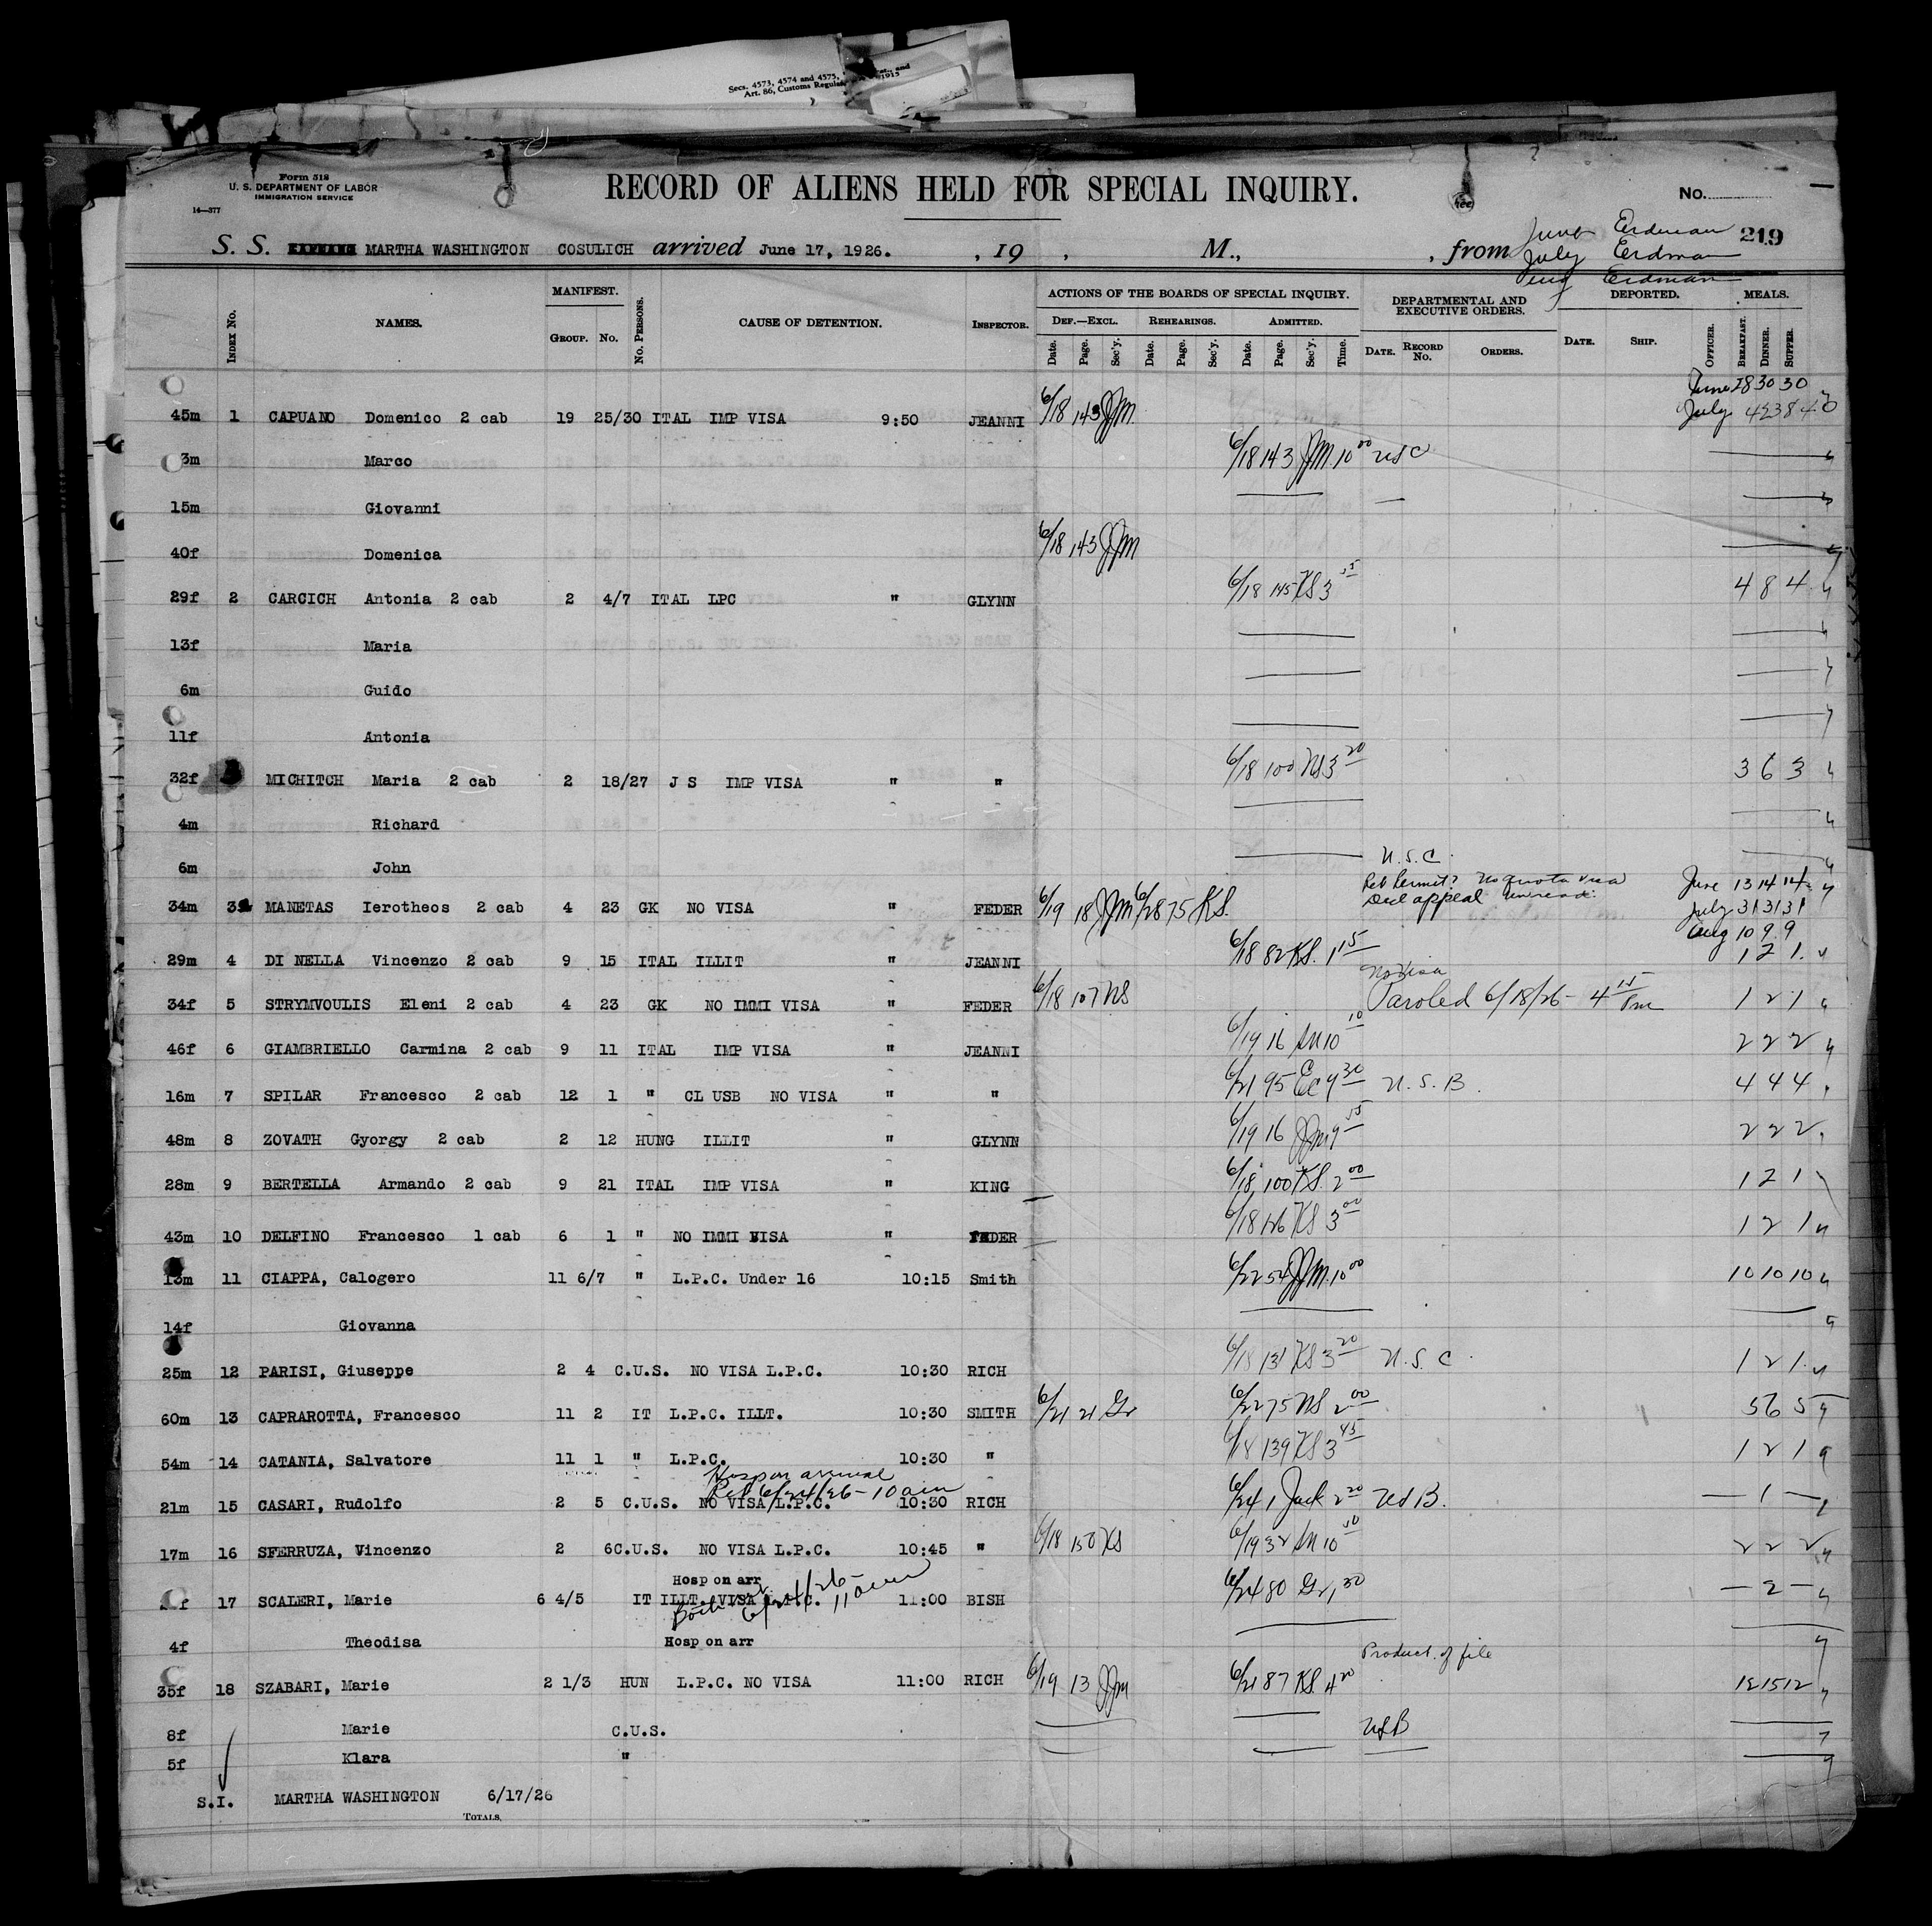 Secs. 4573, 4574 and 4575, and
Art. 86, Customs Regulat 1915
Form 518
U. S. DEPARTMENT OF LABOR
IMMIGRATION SERVICE
14—377
RECORD OF ALIENS HELD FOR SPECIAL INQUIRY.
No.
219
S. S. MARTHA WASHINGTON COSULICH arrived June 17, 1926. , 19 , M., , from
June Erdman
July Erdman
Aug Erdman
INDEX No. NAMES. MANIFEST. GROUP. No. No. PERSONS. CAUSE OF DETENTION. INSPECTOR. ACTIONS OF THE BOARDS OF SPECIAL INQUIRY. DEF.—EXCL. REHEARINGS. ADMITTED. DEPARTMENTAL AND EXECUTIVE ORDERS. DEPORTED. MEALS.
Date. Page. Sec'y. Date. Page. Sec'y. Date. Page. Sec'y. Time. DATE. RECORD No. ORDERS. DATE. SHIP. OFFICER. BREAKFAST. DINNER. SUPPER.
June 28 30 30
45m 1 CAPUANO Domenico 2 cab 19 25/30 ITAL IMP VISA 9:50 JEANNI 6/18 143 JJM July
3m Marco 6/18 143 JJM 10 00 USC
15m Giovanni
40f Domenica 6/18 143 JJM
29f 2 CARCICH Antonia 2 cab 2 4/7 ITAL LPC " GLYNN 6/18 145 KS 3 4 8 4
13f Maria
6m Guido
11f Antonia
32f 3 MICHITCH Maria 2 cab 2 18/27 J S IMP VISA " " 6/18 100 NS 3 20 3 6 3
4m Richard
6m John U.S.C.
34m 3a MANETAS Ierotheos 2 cab 4 23 GK NO VISA " FEDER 6/19 18 JJM 6/28 75 KS. Ret Permit? No quota visa June 13 14 14
appeal July 31 31 31
Aug 10 9 9
29m 4 DI NELLA Vincenzo 2 cab 9 15 ITAL ILLIT " JEANNI 6/18 82 KS. 1 15 1 2 1
34f 5 STRYMVOULIS Eleni 2 cab 4 23 GK NO IMMI VISA " FEDER 6/18 107 NS No Visa Paroled 6/18/26 - 4 15 Pm 1 2 1
46f 6 GIAMBRIELLO Carmina 2 cab 9 11 ITAL IMP VISA " JEANNI 6/19 16 10 10 2 2 2
16m 7 SPILAR Francesco 2 cab 12 1 " CL USB NO VISA " " 6/21 95 EC 9 30 U.S.B. 4 4 4
48m 8 ZOVATH Gyorgy 2 cab 2 12 HUNG ILLIT " GLYNN 6/19 16 JJM 9 55 2 2 2
28m 9 BERTELLA Armando 2 cab 9 21 ITAL IMP VISA " KING 6/18 100 KS. 2 00 1 2 1
43m 10 DELFINO Francesco 1 cab 6 1 " NO IMMI VISA " FEDER 6/18 126 KS 3 00 1 2 1
13m 11 CIAPPA, Calogero 11 6/7 " L.P.C. Under 16 10:15 Smith 6/22 54 JJM. 10 00 10 10 10
14f Giovanna
25m 12 PARISI, Giuseppe 2 4 C.U.S. NO VISA L.P.C. 10:30 RICH 6/18 131 KS 3 20 U.S.C. 1 2 1
60m 13 CAPRAROTTA, Francesco 11 2 IT L.P.C. ILLT. 10:30 SMITH 6/21 21 Gr 6/22 75 NS 2 00 5 6 5
54m 14 CATANIA, Salvatore 11 1 " L.P.C. 10:30 " 6/18 139 KS 3 45 1 2 1
Hosp on arrival
Rel 6/24/26 - 10 am
21m 15 CASARI, Rudolfo 2 5 C.U.S. NO VISA/L.P.C. 10:30 RICH 6/24 1 Jack 2 20 USB. — 1 —
17m 16 SFERRUZA, Vincenzo 2 6 C.U.S. NO VISA L.P.C. 10:45 " 6/18 150 KS 6/19 32 10 2 2 2
Hosp on arr
17 SCALERI, Marie 6 4/5 IT ILLT. VISA L.P.C. 11:00 BISH 6/24 80 Gr 1 30 — 2 —
6/24/26 - 11 am
4f Theodisa Hosp on arr
Product. of file
35f 18 SZABARI, Marie 2 1/3 HUN L.P.C. NO VISA 11:00 RICH 6/19 13 JJM 6/21 87 KS. 4 20 12 15 12
8f Marie C.U.S. USB
5f Klara "
S.I. MARTHA WASHINGTON 6/17/26
TOTALS.